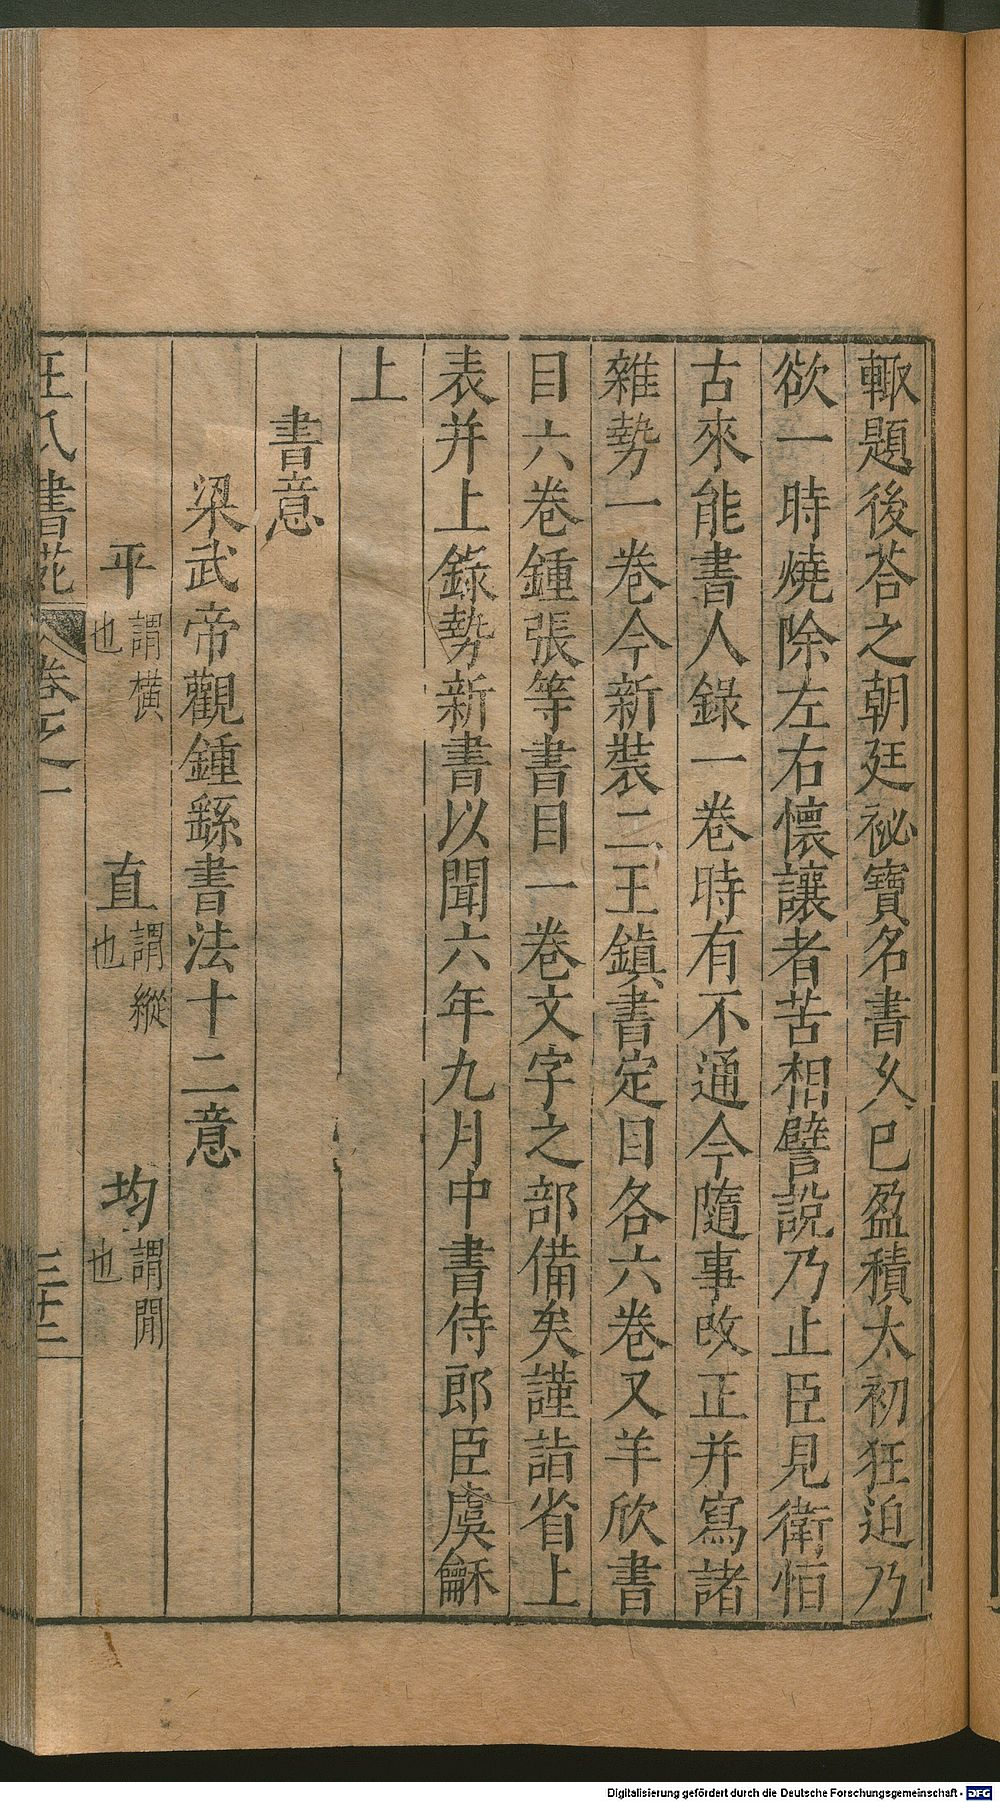 輙題後荅之朝廷祕寶名書乆巳盈積太初狂迫乃
欲一時燒除左右懷讓者苦相譬說乃止臣見衛恒
古來能書人錄一卷時有不通今隨事改正并寫諸
雜勢一卷今新裝二王鎮書定目各六卷又羊欣書
目六卷鍾張等書目一卷文字之部備矣謹詣省上
表并上錄勢新書以聞六年九月中書侍郎臣虞龢
上
書意
梁武帝觀鍾繇書法十二意
平謂橫也 直謂縱也 均謂閒也
王氏書苑 卷之一 三十二
Digitalisierung gefördert durch die Deutsche Forschungsgemeinschaft - DFG